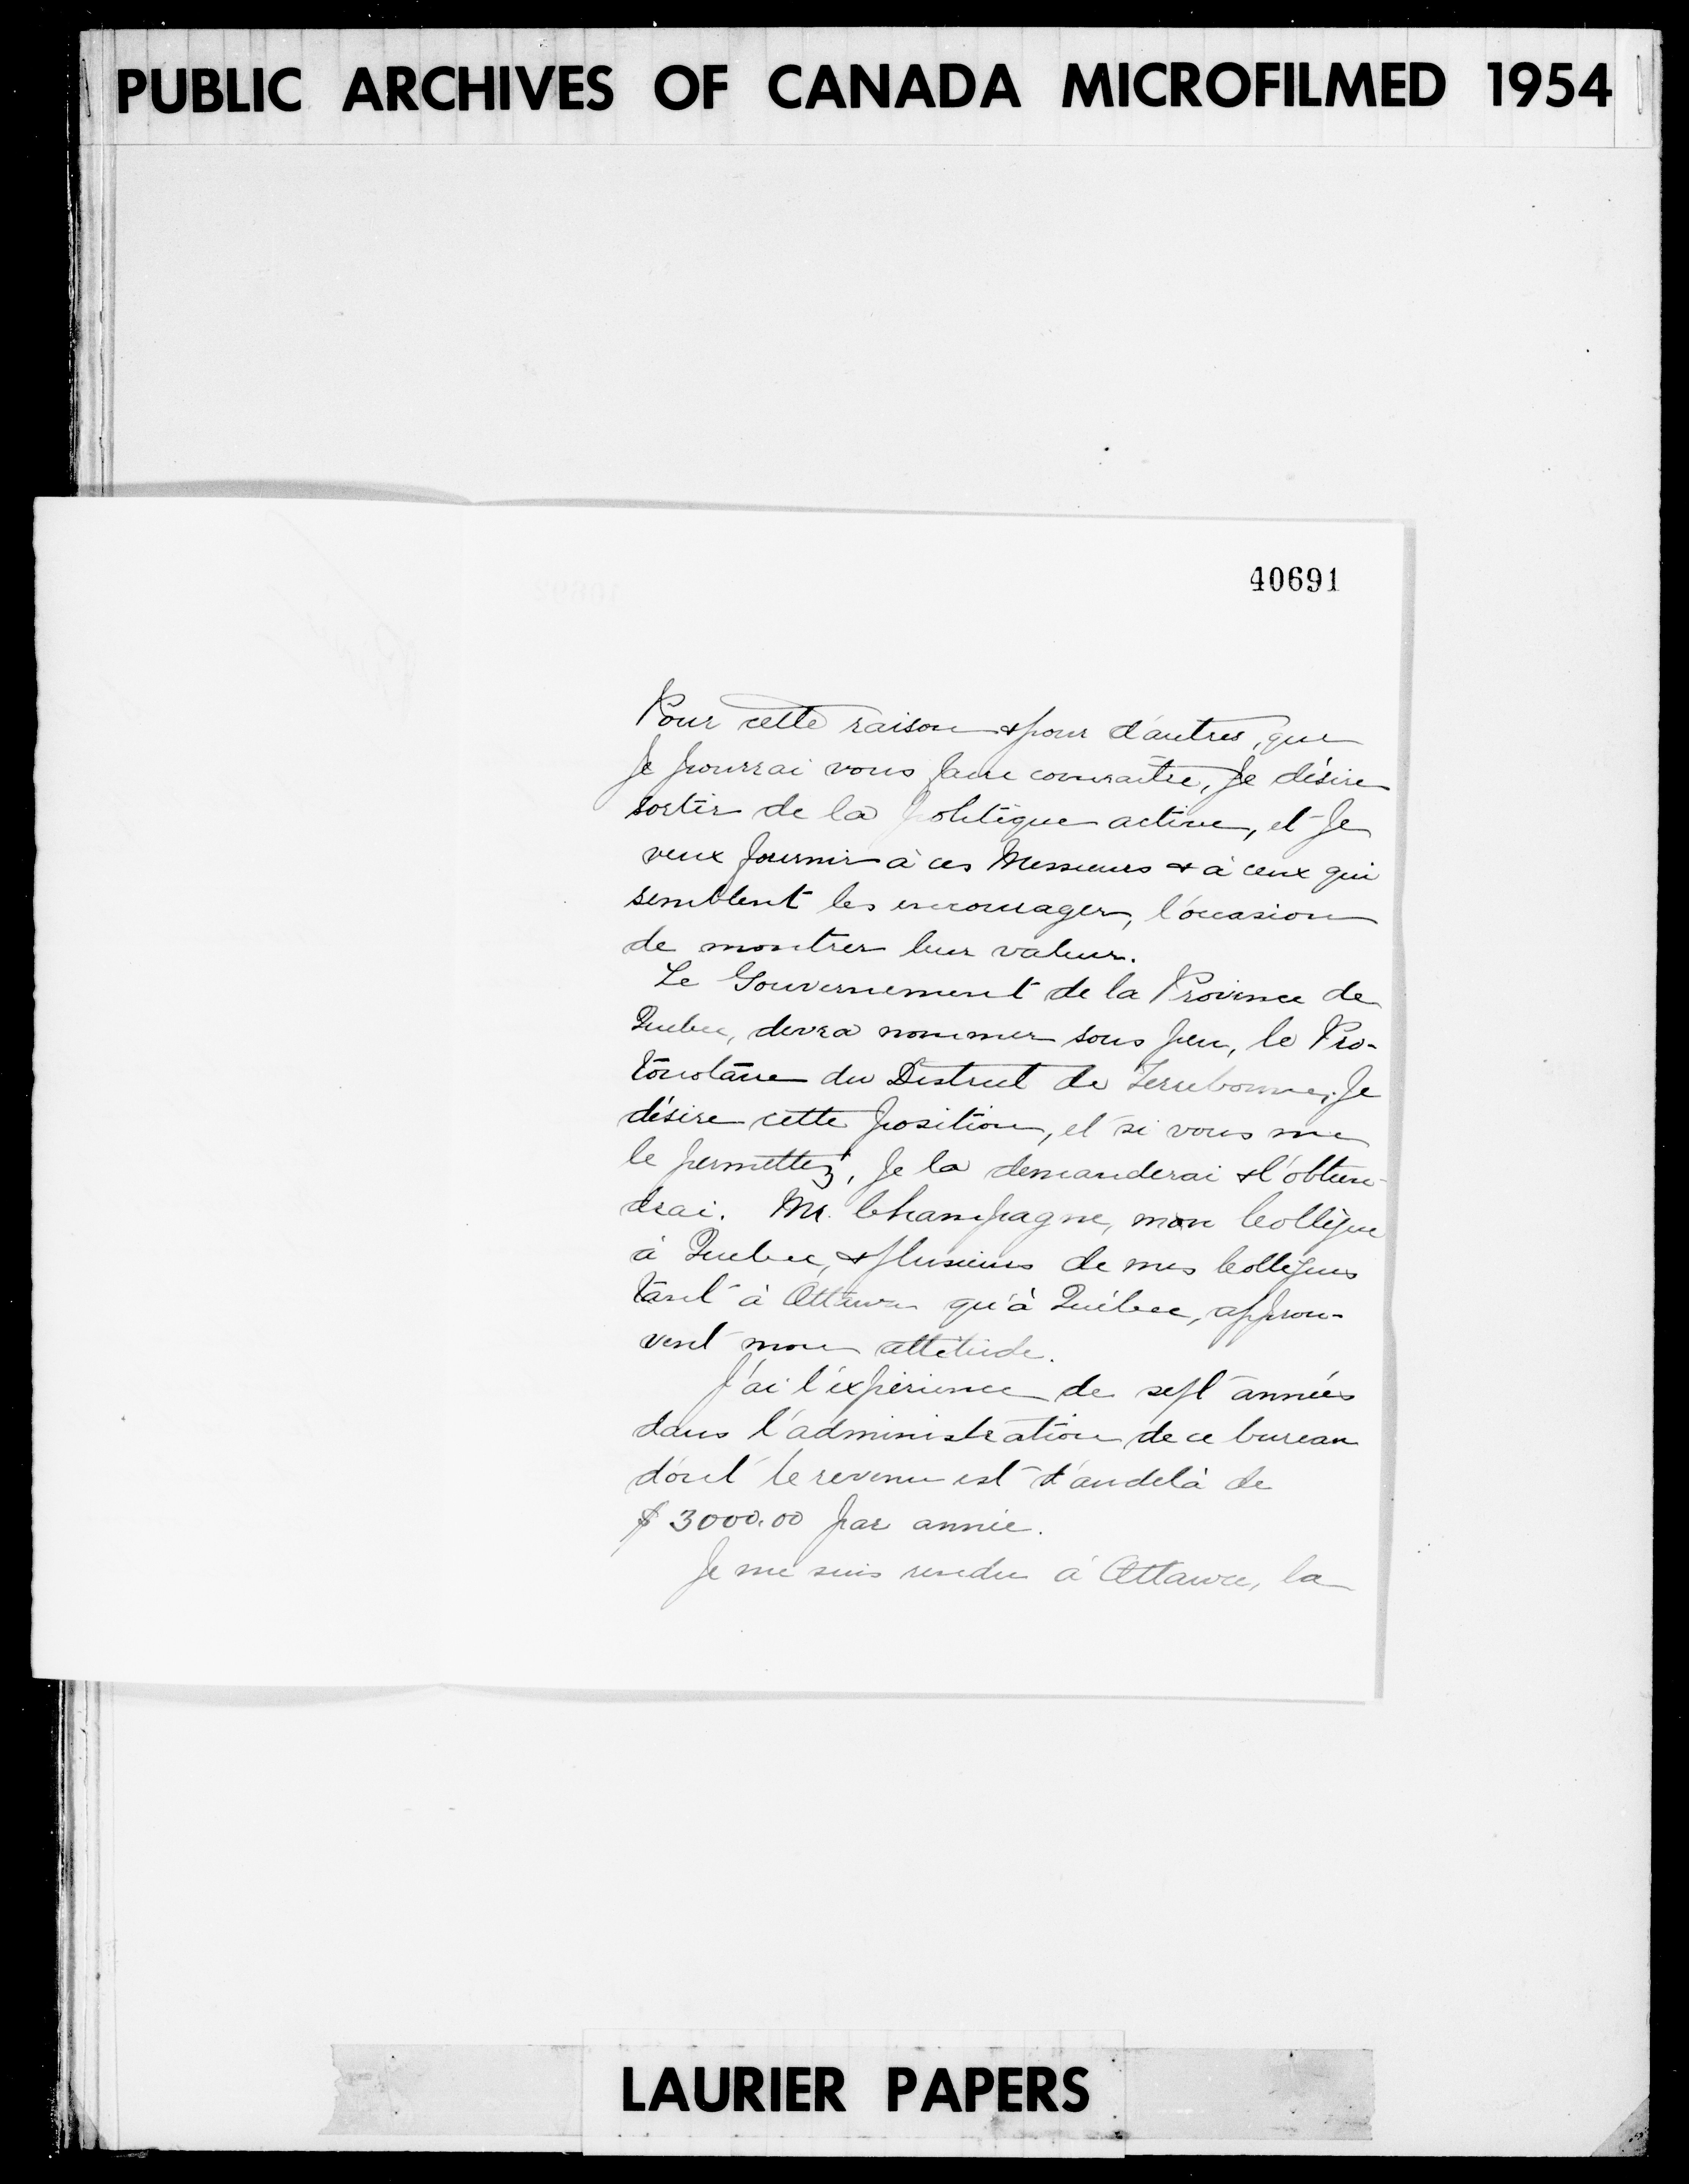 PUBLIC ARCHIVES OF CANADA MICROFILMED 1954
40691
Pour cette raison & pour d'autres, que
Je pourrai vous faire connaître, Je désire
sortir de la politique active, et Je
veux fournir à ces Messieurs & à ceux qui
semblent les encourager, l'occasion
de montrer leur valeur.
Le Gouvernement de la Province de
Quebec, devra nommer sous peu, le Pro-
tonotaire du District de Terrebonne, Je
désire cette position, et si vous me
le permettez, Je la demanderai & l'obtien-
drai. Mr. Champagne, mon Collègue
à Quebec, & plusieurs de mes Collègues
tant à Ottawa qu'à Québec, approu-
vent mon attitude.
J'ai l'expérience de sept années
dans l'administration de ce bureau
dont le revenu est d'audelà de
$ 3000.00 par année.
Je me suis rendu à Ottawa, la
LAURIER PAPERS